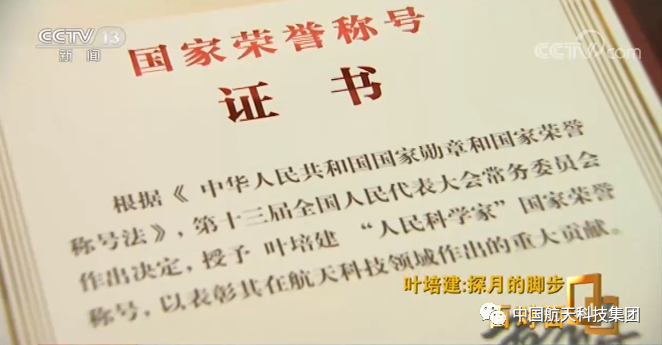 CCTV 13
新闻
CCTV.com
国家荣誉称号
证书
根据《中华人民共和国国家勋章和国家荣誉
称号法》，第十三届全国人民代表大会常务委员会
作出决定，授予 叶培建 “人民科学家”国家荣誉
称号，以表彰其在航天科技领域作出的重大贡献。
叶培建:探月的脚步
中国航天科技集团